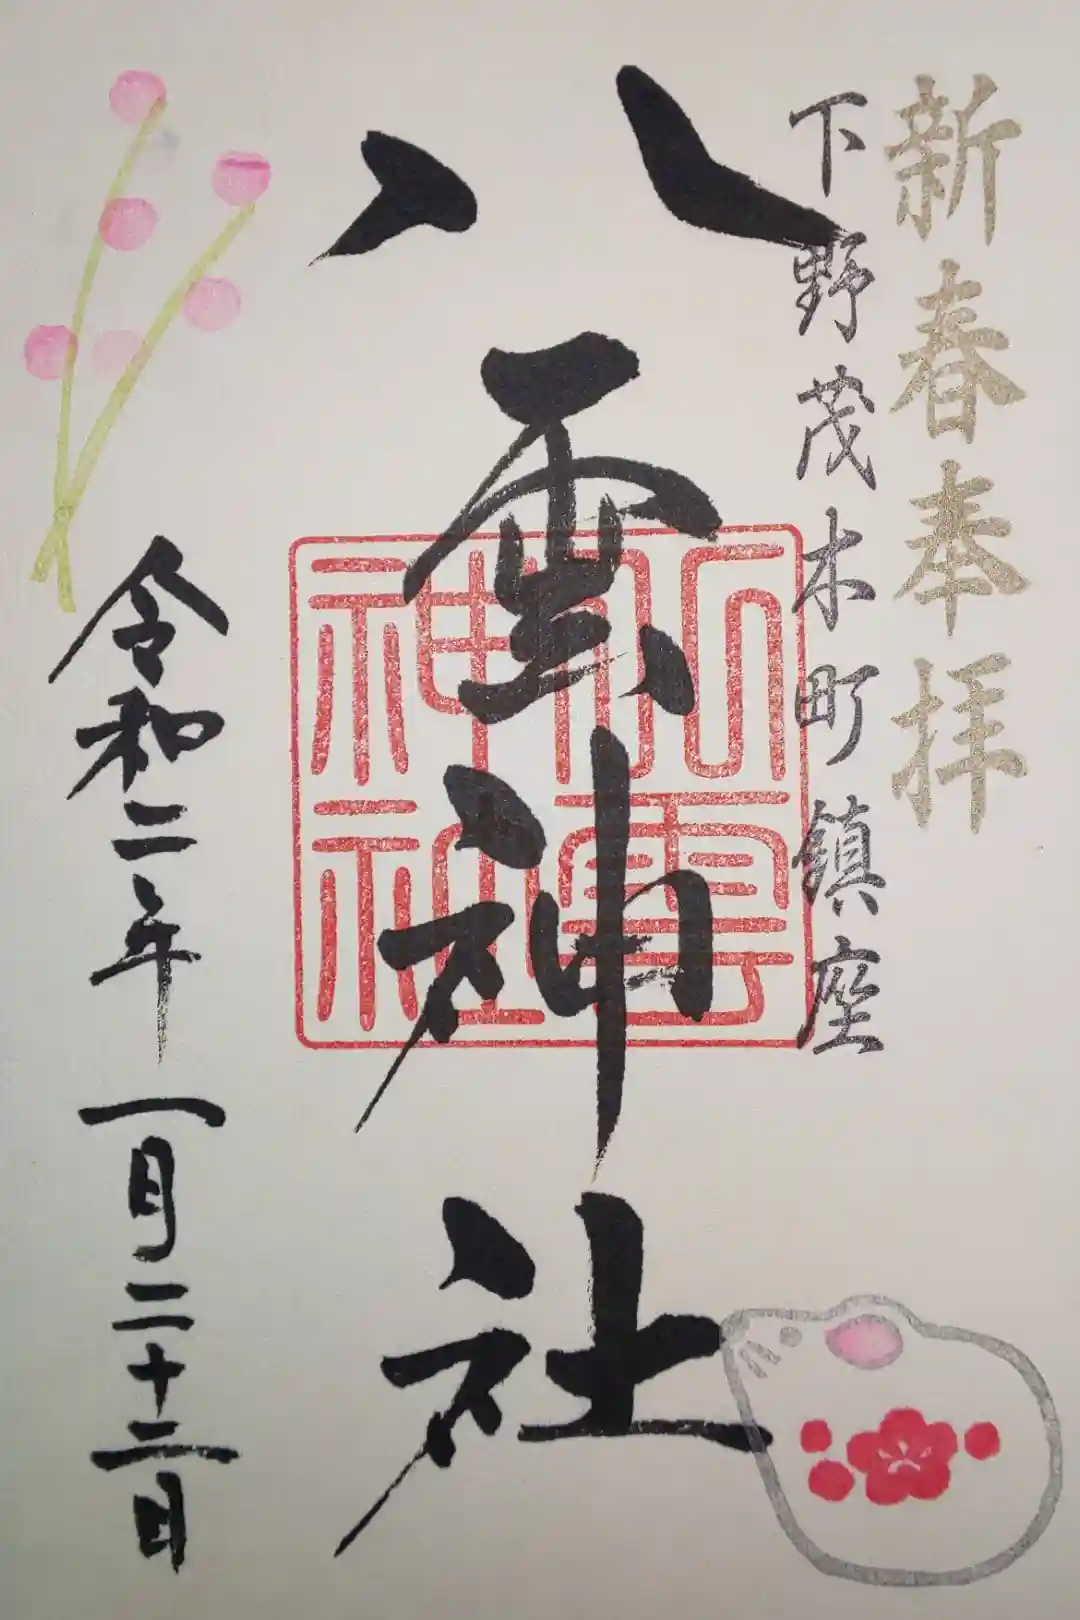 新春奉拝
下野茂木町鎮座
八雲神社
八雲
神社
令和二年 一月二十二日